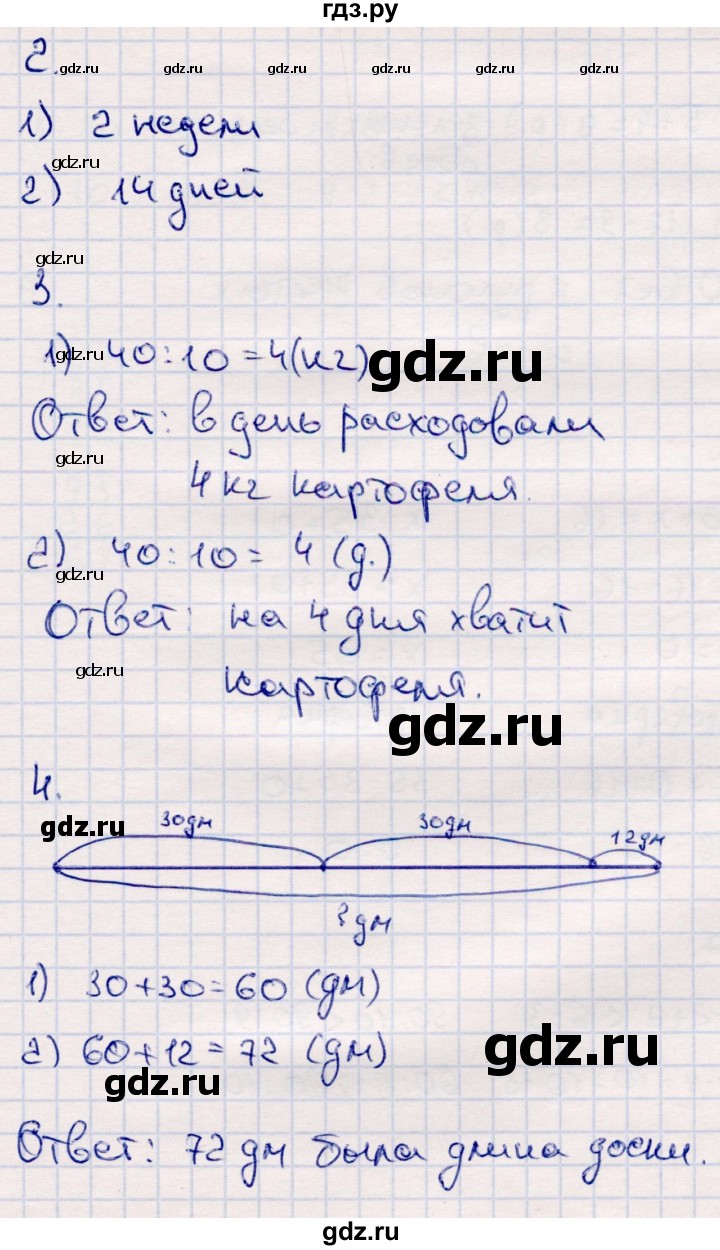 гдз.ру
2.
gdz.ru gdz.ru gdz.ru gdz.ru gdz.ru gdz.ru
1) 2 недели
gdz.ru
2) 14 дней
gdz.ru
3.
1) 40:10=4(кг)
gdz.ru
gdz.ru
Ответ: в день расходовали
gdz.ru
4 кг картофеля.
2) 40:10= 4 (д.)
gdz.ru
Ответ: на 4 дня хватит
gdz.ru
картофеля.
gdz.ru
4.
gdz.ru
30дм 30дм 12дм
? дм
1) 30+30=60 (дм)
2) 60+12=72 (дм)
gdz.ru
gdz.ru
Ответ: 72 дм была длина доски.
gdz.ru